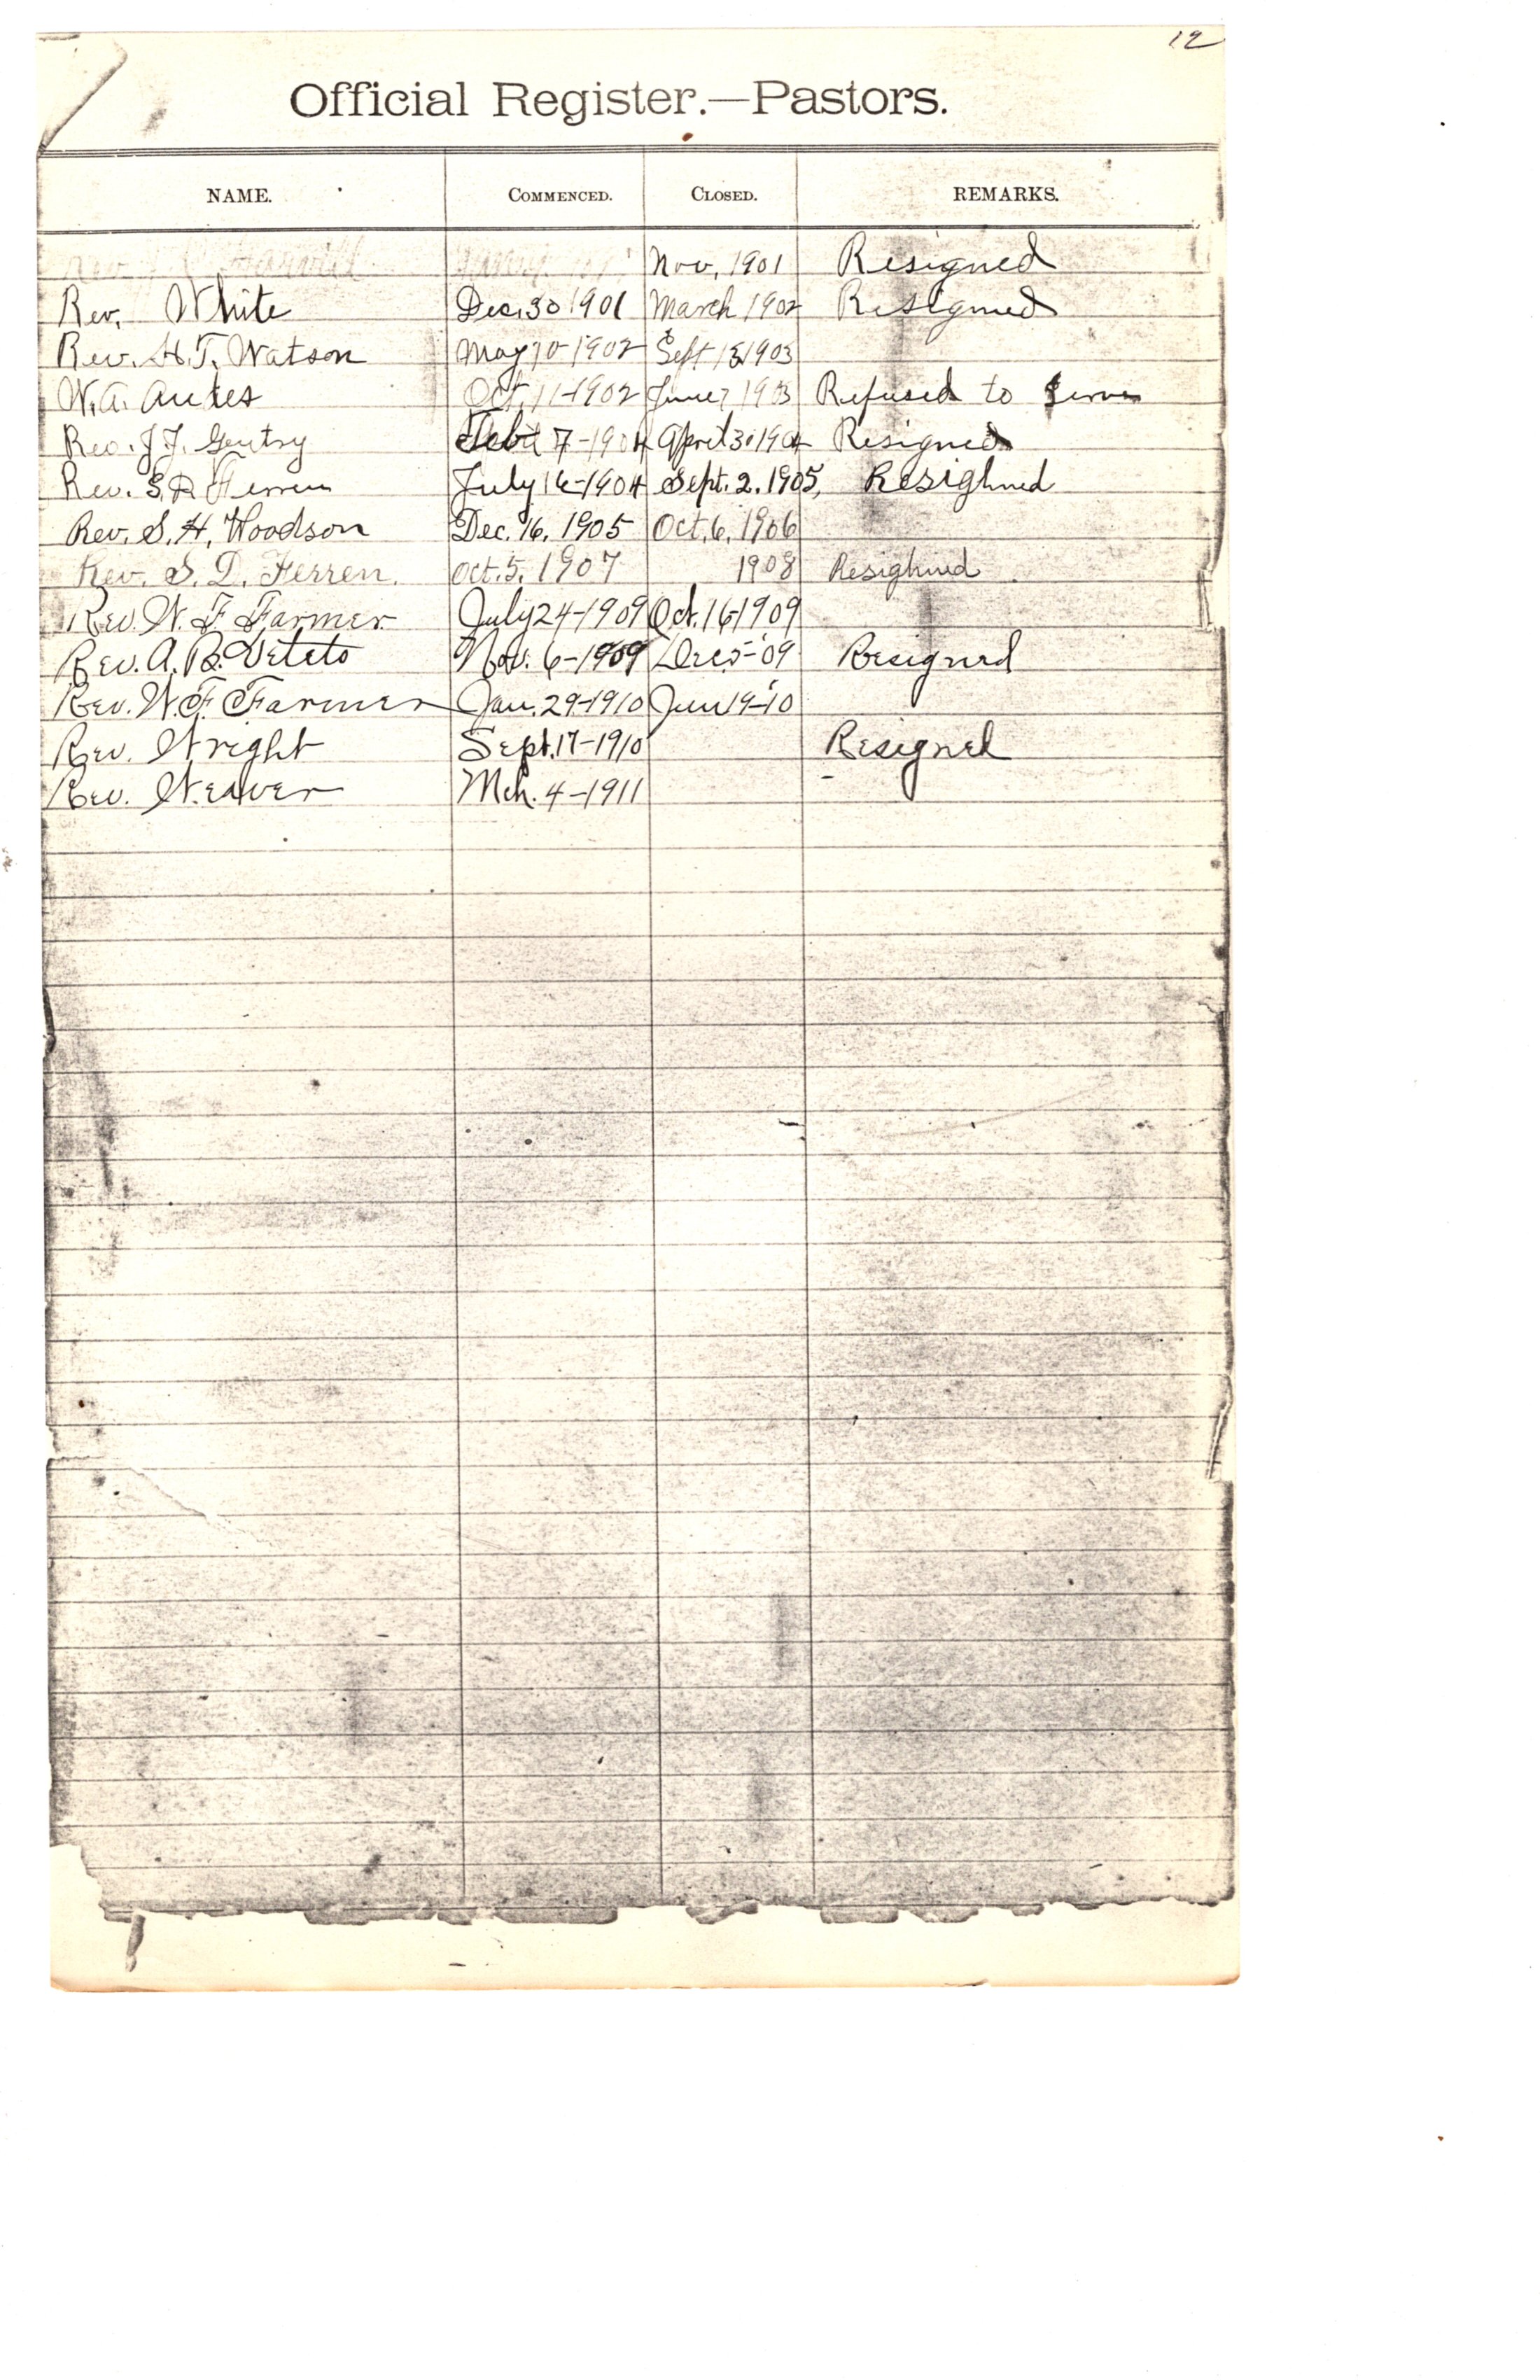 12
Official Register.—Pastors.
NAME. COMMENCED. CLOSED. REMARKS.
Rev. Nov. 1901 Resigned
Rev. White Dec. 30 1901 March 1902 Resigned
Rev. H. T. Watson May 10 1902 Sept 1903
W. A. Oct. 11-1902 June 7 1903 Refused to Serve
Rev. J. J. Gentry Feb 7-1904 April 30 1904 Resigned
Rev. S. D. Ferren July 16-1904 Sept. 2. 1905, Resighned
Rev. S. H. Woodson Dec. 16. 1905 Oct. 6, 1906
Rev. S. D. Ferren. Oct. 5. 1907 1908 Resighned
Rev. W. F. Farmer July 24-1909 Oct. 16-1909
Rev. A. B. Veteto Nov. 6-1909 Dec 5-'09 Resigned
Rev. W. F. Farmer Jan. 29-1910 Jun 19-'10
Rev. Wright Sept. 17-1910 Resigned
Rev. Weaver Mch. 4-1911